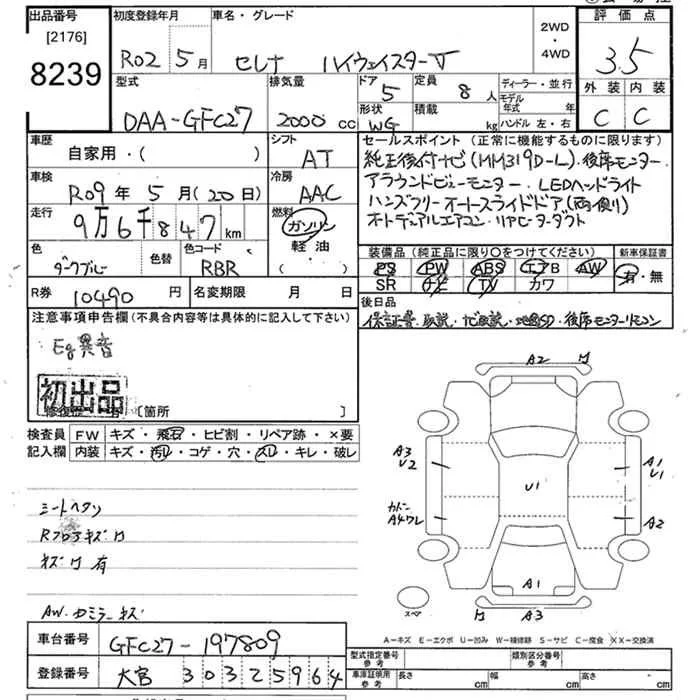 出品番号
[2176]
8239
初度登録年月
R02 5月
車名・グレード
セレナ ハイウェイスターV
2WD
・
4WD
評価点
3.5
外装 内装
C C
型式
DAA-GFC27
排気量
2000 cc
ドア
5
定員
8 人
形状
WG
積載
kg
ディーラー・並行
モデル年式 年
ハンドル 左・右
車歴
自家用・( )
シフト
AT
車検
R09年 5月(20日)
冷房
AAC
走行
9万6千847 km
燃料
ガソリン
軽油
・( )
色
ダークブルー
色替
色コード
RBR
R券
10490 円
名変期限 月 日
セールスポイント(正常に機能するものに限ります)
純正後付ナビ(MM319D-L)・後席モニター
アラウンドビューモニター・LEDヘッドライト
ハンズフリーオートスライドドア(両側)
オートデュアルエアコン・リアヒーターダクト
装備品(純正品に限り○をつけてください)
PS PW ABS エアB AW
SR ナビ TV カワ
新車保証書
有・無
後日品
保証書・取説・ナビ取説・地図SD・後席モニターリモコン
注意事項申告欄(不具合内容等は具体的に記入して下さい)
Eg異音
初出品
修復歴 有 [箇所 ]
検査員記入欄
FW キズ・飛石・ヒビ割・リペア跡・×要
内装 キズ・汚レ・コゲ・穴・スレ・キレ・破レ
シートヘタリ
キズ 有
AW・カミラーキズ
A2
A3
U2
U1
A1
U1
A2
A1
A3
スペア
A-キズ E-エクボ U-凹み W-補修跡 S-サビ C-腐食 XX-交換済
車台番号
GFC27-197809
登録番号
大宮 303 2 5964
型式指定番号
参考
類別区分番号
参考
車庫証明用
参考
長さ cm
幅 cm
高さ cm